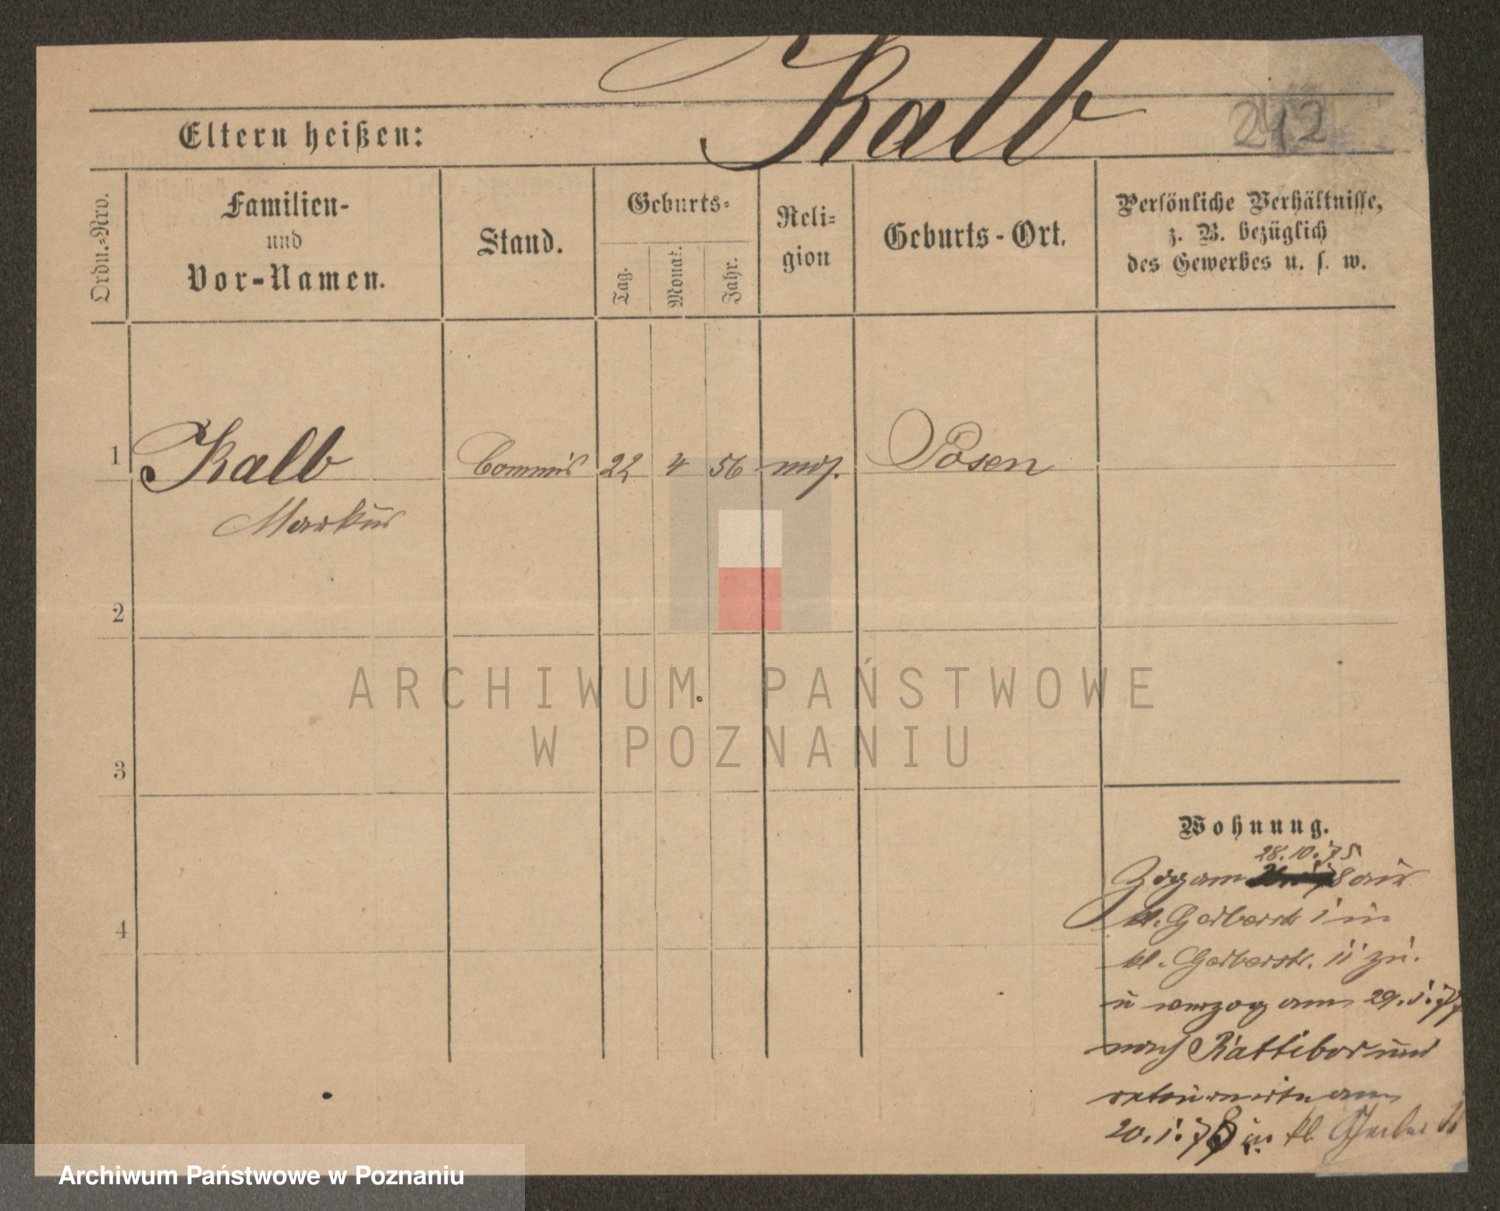 Kalb
242
Eltern heißen:
Ordn.=Nro.
Familien-
und
Vor-Namen.
Stand.
Geburts=
Tag.
Monat.
Jahr.
Reli=
gion
Geburts-Ort.
Persönliche Verhältnisse,
z. B. bezüglich
des Gewerbes u. s. w.
1 Kalb Commis 22 4 56 mos. Posen
Markus
2
3
4
Wohnung.
28.10.75
Zog am aus
kl. Gerberstr in
kl. Gerberstr. 11 zu.
u verzog am 29.1.77
nach Rattibor und
retournirte am
20.1.78 in kl. Gerber 11
ARCHIWUM PAŃSTWOWE
W POZNANIU
Archiwum Państwowe w Poznaniu